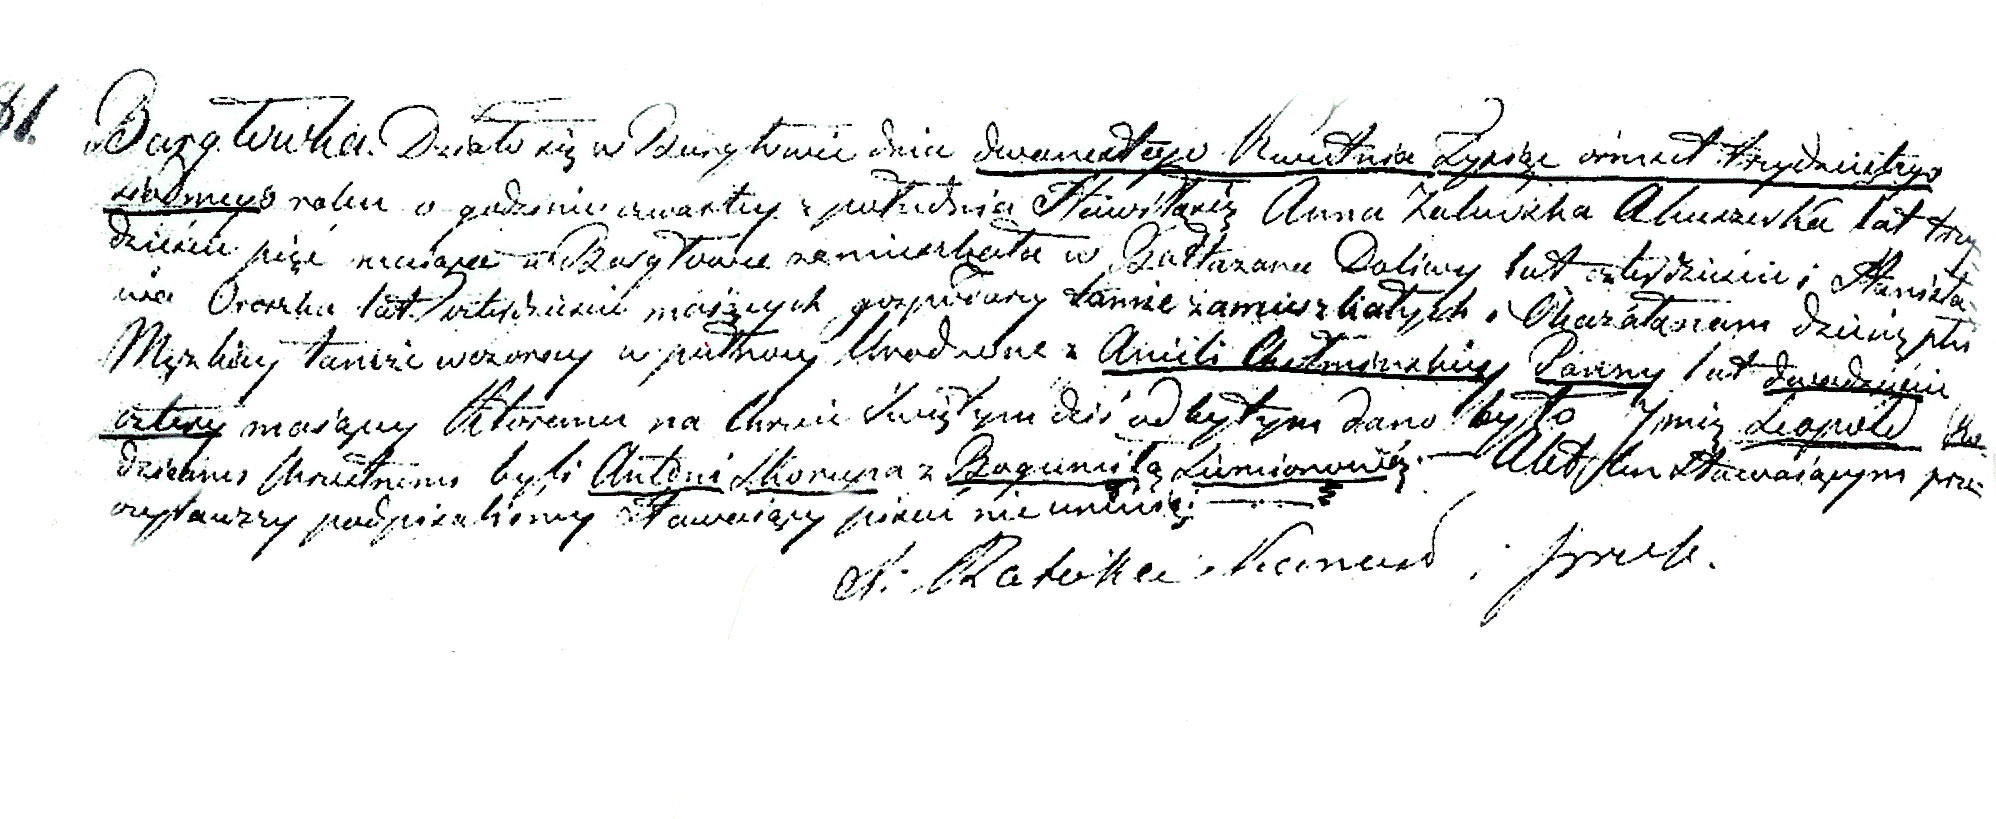 81.
Bargłowka. Działo się w Bargłowie dnia dwunastego Kwietnia Tysiąc ośmset trzydziestego
siódmego roku o godzinie czwarty z południa Stawiła się Anna Zaluska Akuszerka lat trzy
dzieści pięć maiąca w Bargłowie zamieszkała w Baltazara Doliwy lat czterdzieści i Stanisła
wa lat czterdzieści maiących gospodarzy tamże zamieszkałych i Okazała nam dziecię płci
Męzkiey tamże wczoray w północy Urodzone z Anieli Chełmińskiey Panny lat dwadzieścia
cztery maiącey Któremu na Chrzcie Świętym dziś odbytym dano było Imię Leopold Ro-
dzicami Chrzestnemi byli Antoni Skorupa z Bogumiłą Akt ten stawaiącym prze-
czytawszy podpisaliśmy Stawaiący pisać nie umieią